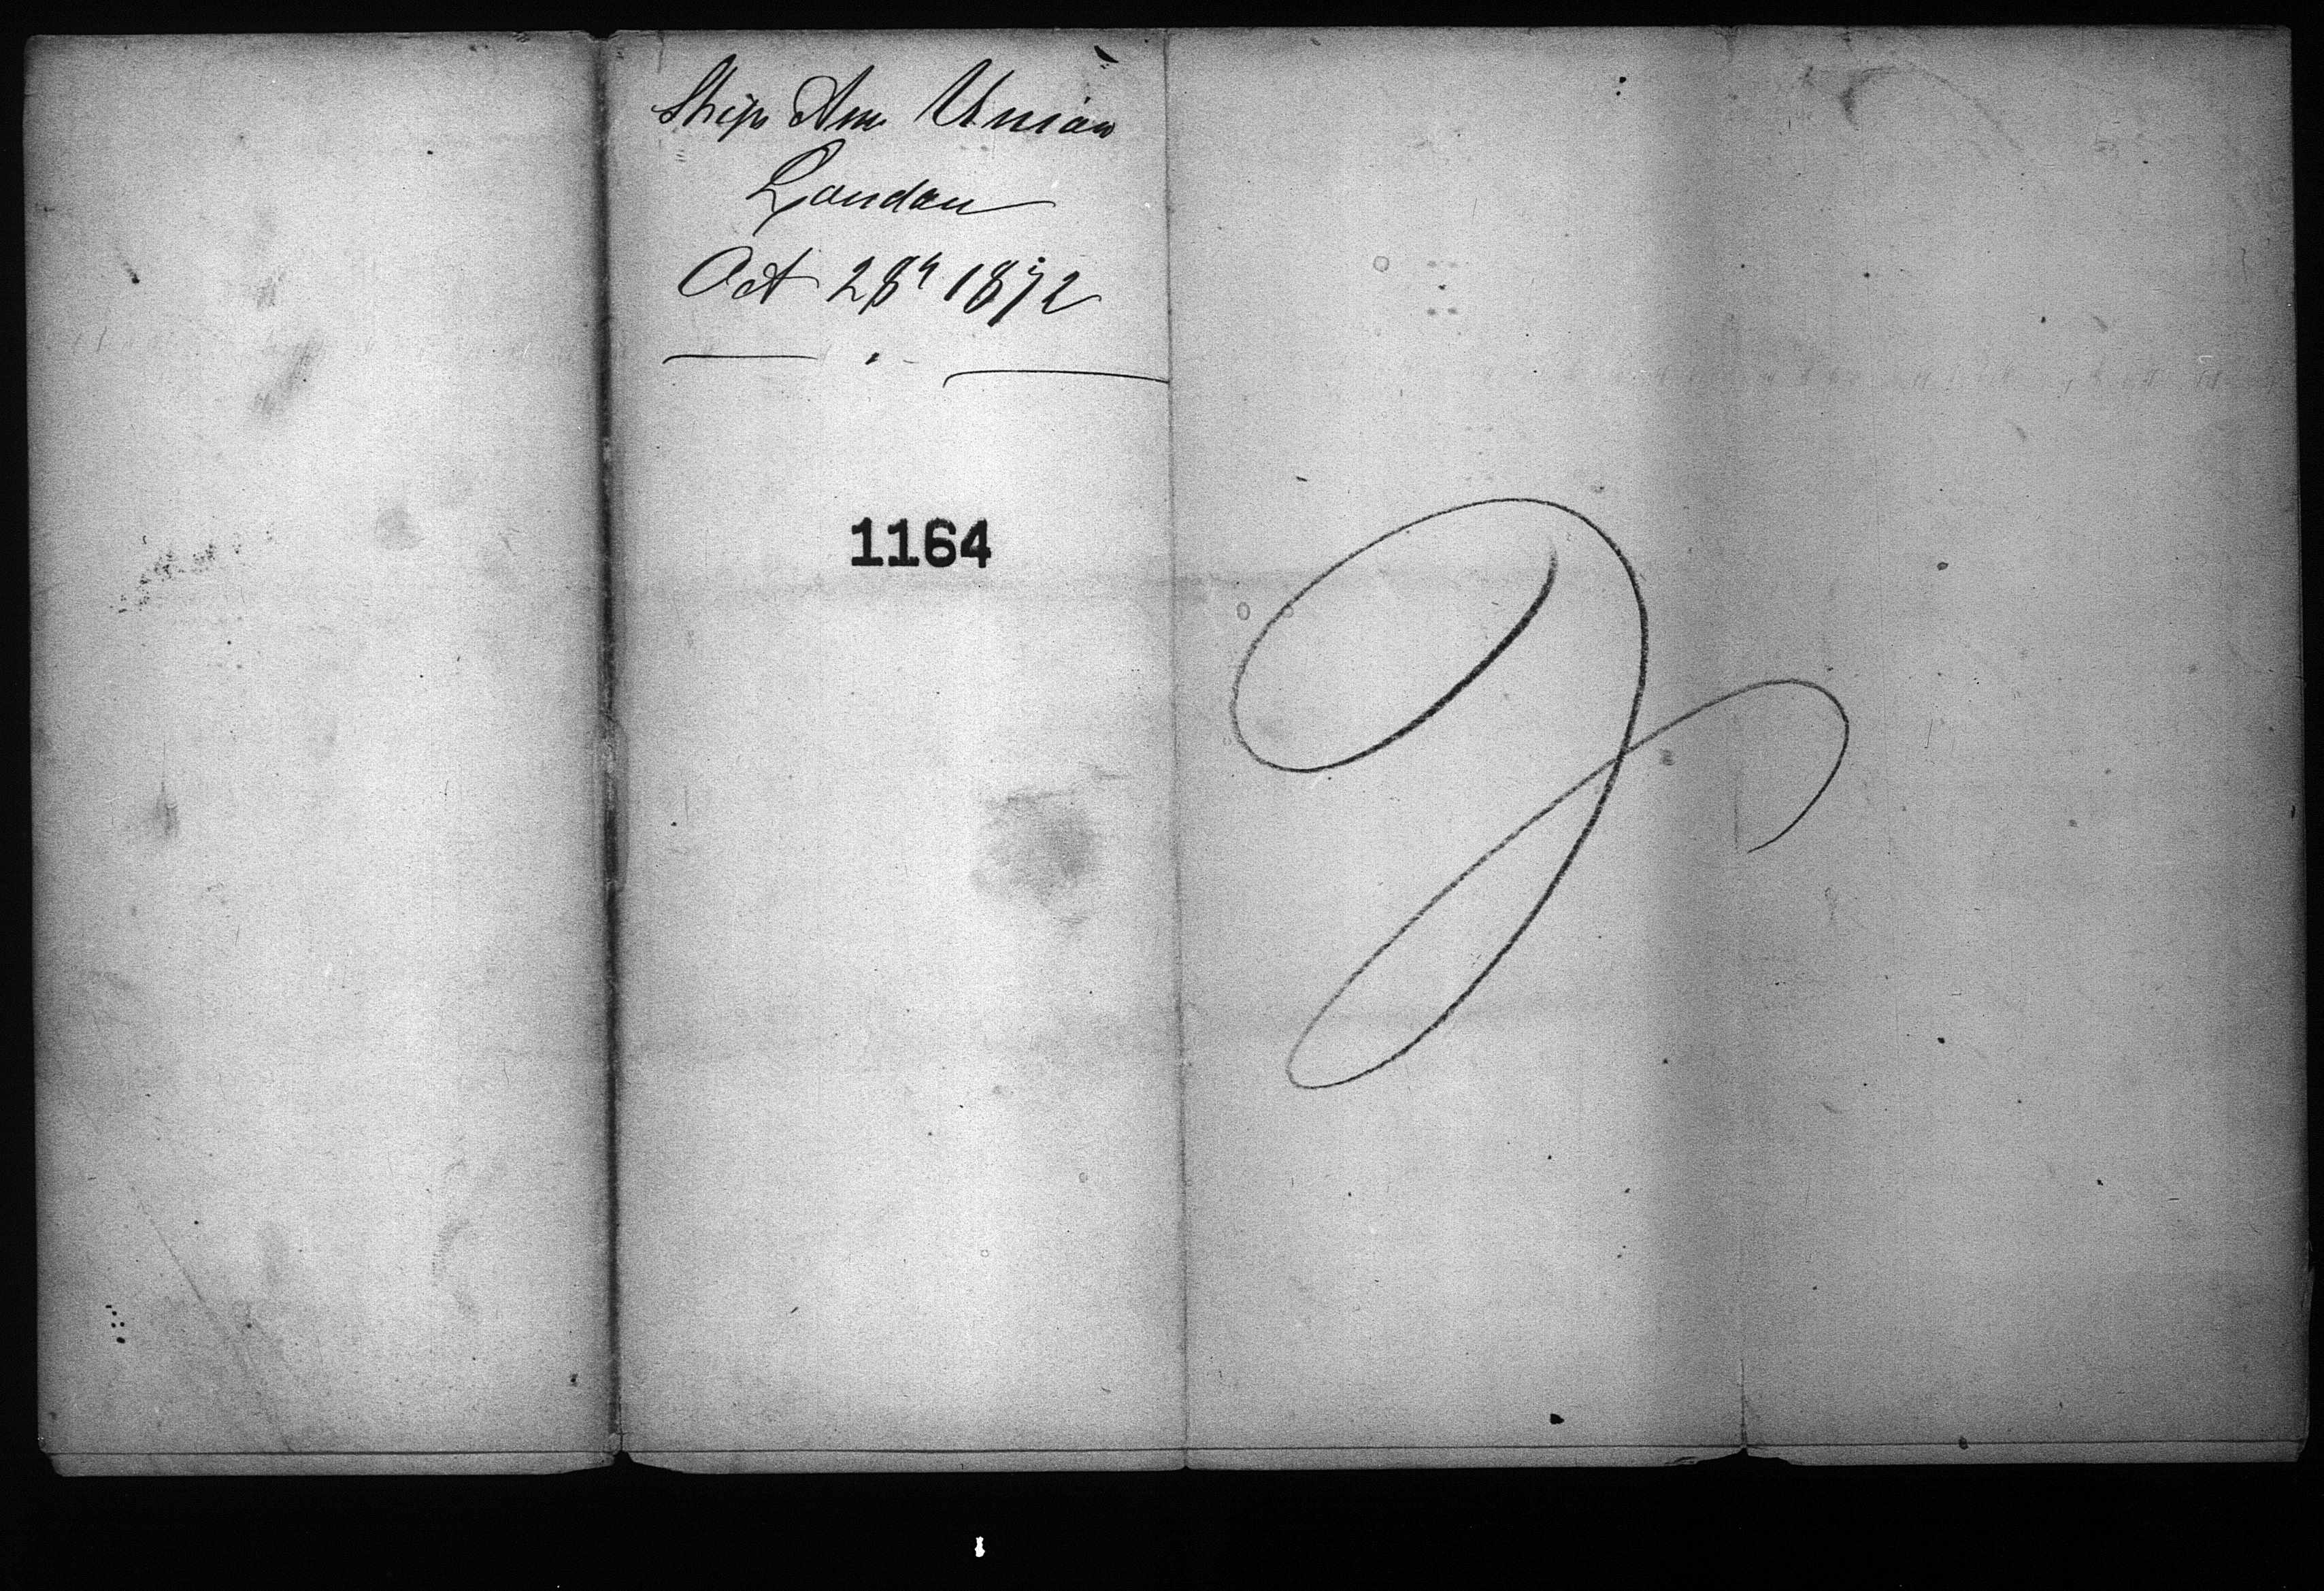 Ship Am Union
London
Oct 28th 1872
1164